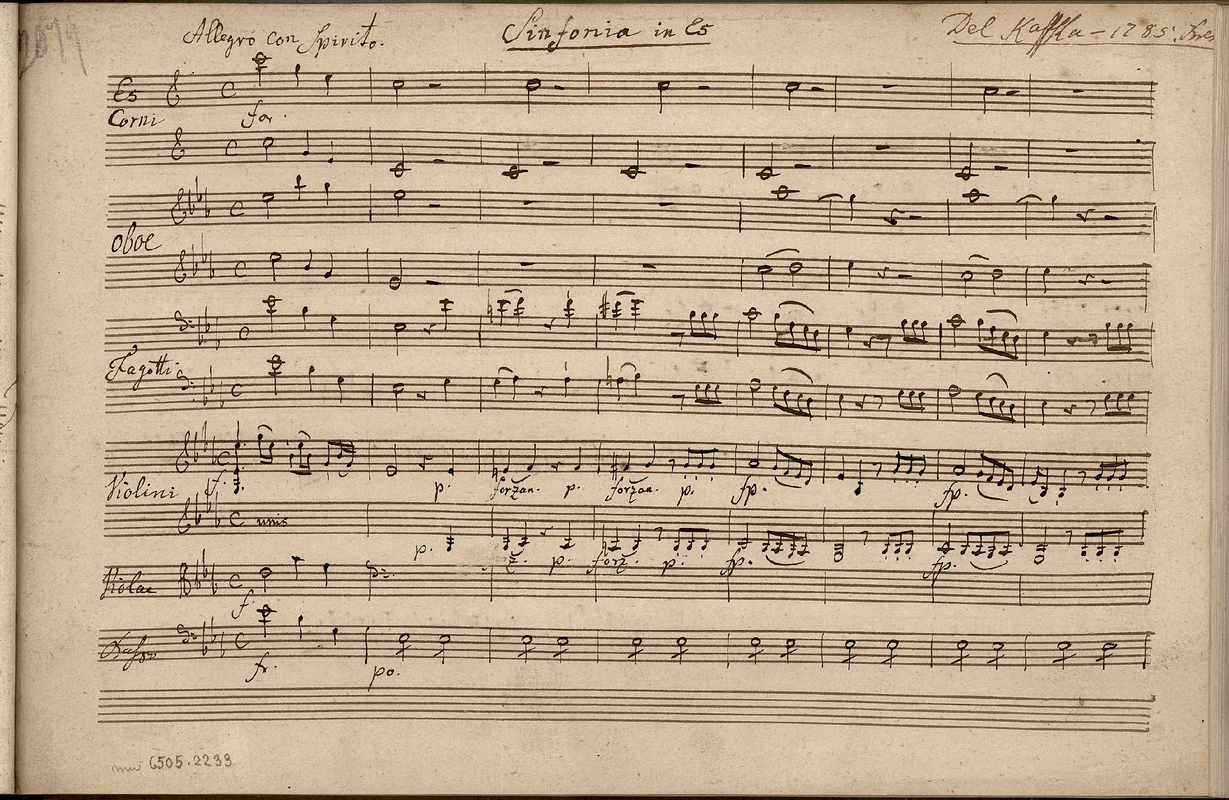 Allegro con Spirito. Sinfonia in Es Del Kaffka - 1785.
Es
Corni
for.
oboe
Fagotti
Violini
f. p. forzan. p. forzan. p. fp. fp.
unis
p. p. forz. p. fp. fp.
Violae
f.
Basso
fr. po.
mus 6505.2233